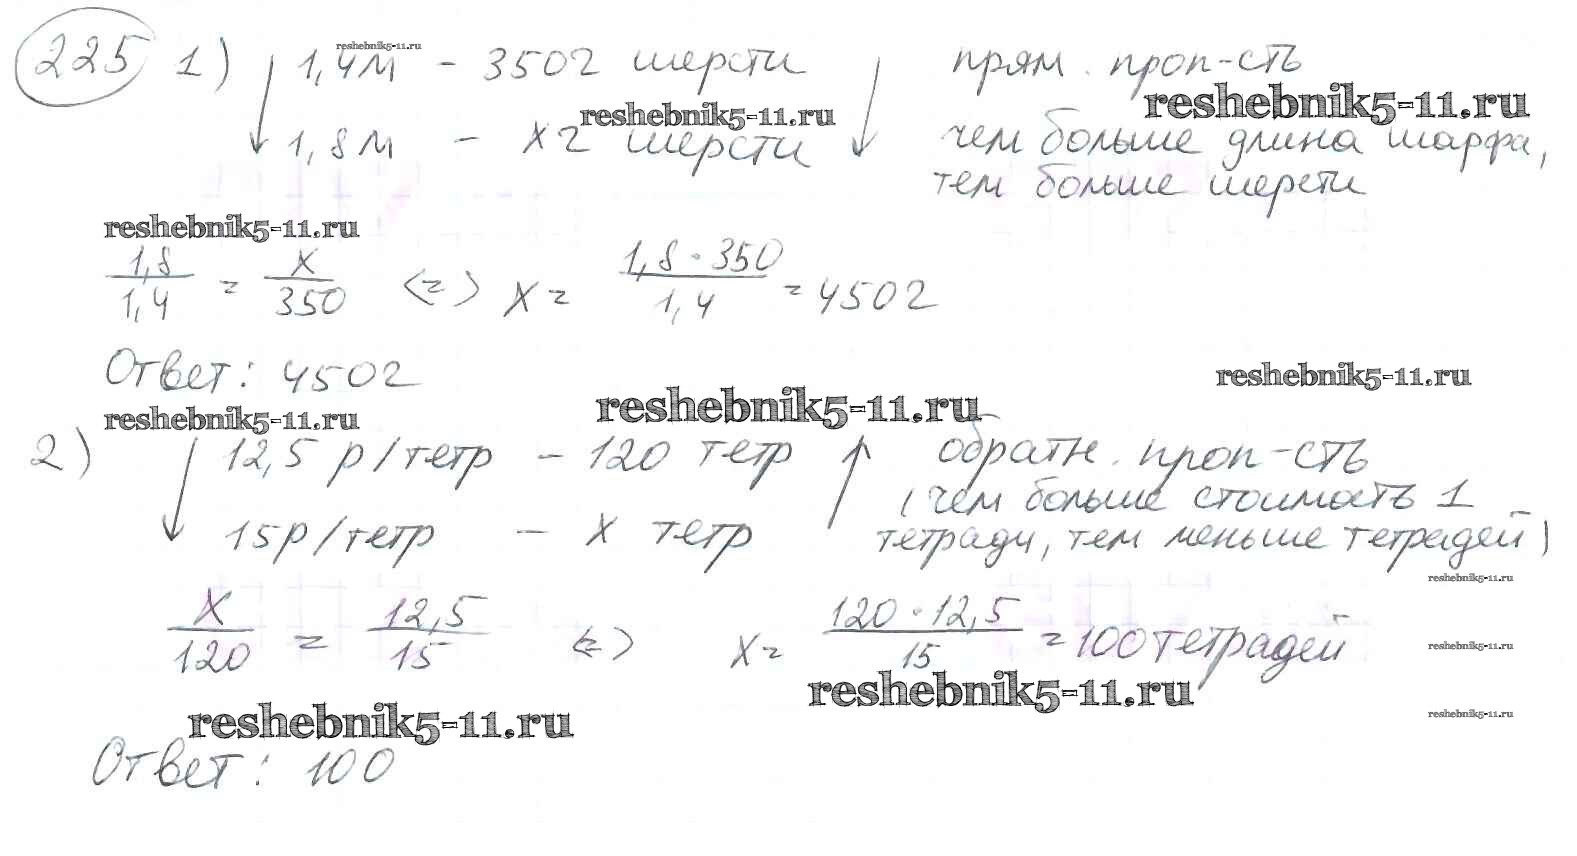 225 1) 1,4 м - 350 г шерсти прям. проп-сть
reshebnik5-11.ru
reshebnik5-11.ru
reshebnik5-11.ru
1,8 м - x г шерсти чем больше длина шарфа,
тем больше шерсти
reshebnik5-11.ru
1,8/1,4 = x/350 <=> x = 1,8 · 350/1,4 = 450 г
Ответ: 450 г
reshebnik5-11.ru
reshebnik5-11.ru
reshebnik5-11.ru
2) 12,5 р/тетр - 120 тетр обратн. проп-сть
(чем больше стоимость 1
15 р/тетр - x тетр тетради, тем меньше тетрадей)
reshebnik5-11.ru
x/120 = 12,5/15 <=> x = 120 · 12,5/15 = 100 тетрадей
reshebnik5-11.ru
reshebnik5-11.ru
reshebnik5-11.ru
reshebnik5-11.ru
Ответ: 100